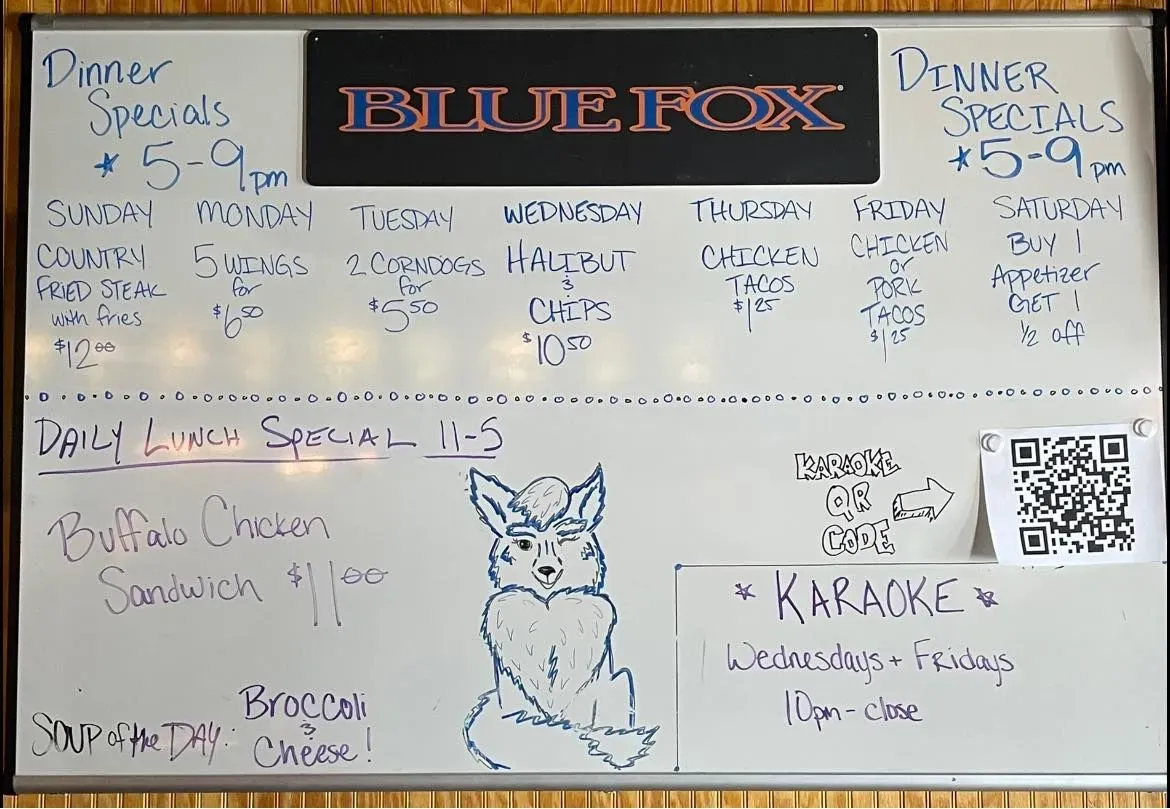 Dinner
Specials
* 5-9pm
BLUE FOX
DINNER
SPECIALS
* 5-9pm
SUNDAY
COUNTRY
FRIED STEAK
with fries
$12.00
MONDAY
5 WINGS
for
$6.50
TUESDAY
2 CORNDOGS
for
$5.50
WEDNESDAY
HALIBUT
&
CHIPS
$10.50
THURSDAY
CHICKEN
TACOS
$1.25
FRIDAY
CHICKEN
or
PORK
TACOS
$1.25
SATURDAY
BUY 1
Appetizer
GET 1
1/2 off
DAILY LUNCH SPECIAL 11-5
Buffalo Chicken
Sandwich $11.00
SOUP of the DAY:
BROCCOLI
&
Cheese!
KARAOKE
QR
CODE
* KARAOKE *
Wednesdays + Fridays
10pm - close